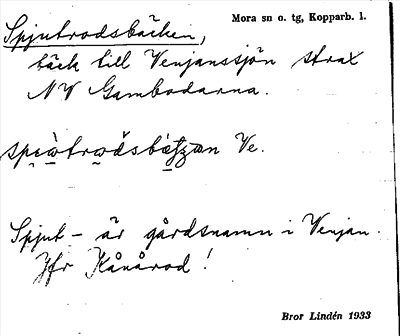 Spjutrodsbäcken,
Mora sn o. tg, Kopparb. l.
bäck till Venjanssjön strax
NV Gambodarna.
Ve.
Spjut- är gårdsnamn i Venjan.
Jfr Kånårod!
Bror Lindén 1933